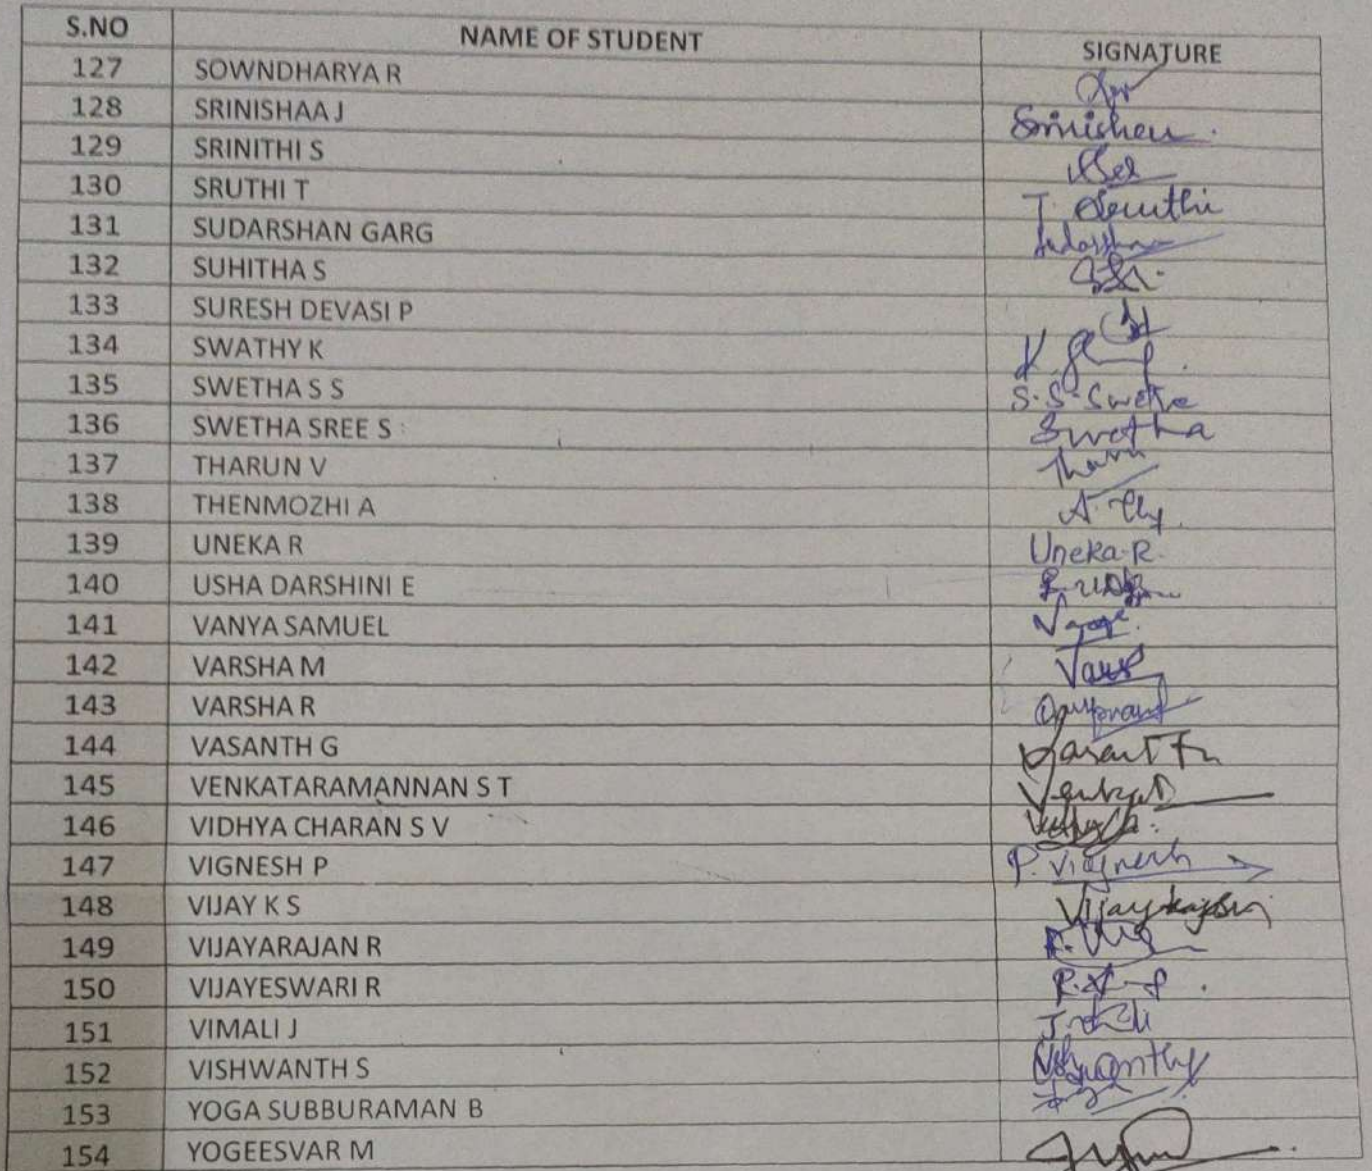 S.NO NAME OF STUDENT SIGNATURE
127 SOWNDHARYA R
128 SRINISHAA J
129 SRINITHI S
130 SRUTHI T T. Sruthi
131 SUDARSHAN GARG
132 SUHITHA S
133 SURESH DEVASI P
134 SWATHY K
135 SWETHA S S S.S. Swetha
136 SWETHA SREE S Swetha
137 THARUN V
138 THENMOZHI A
139 UNEKA R Uneka.R.
140 USHA DARSHINI E
141 VANYA SAMUEL
142 VARSHA M
143 VARSHA R
144 VASANTH G
145 VENKATARAMANNAN S T
146 VIDHYA CHARAN S V
147 VIGNESH P P. Vignesh
148 VIJAY K S
149 VIJAYARAJAN R
150 VIJAYESWARI R
151 VIMALI J
152 VISHWANTH S
153 YOGA SUBBURAMAN B
154 YOGEESVAR M